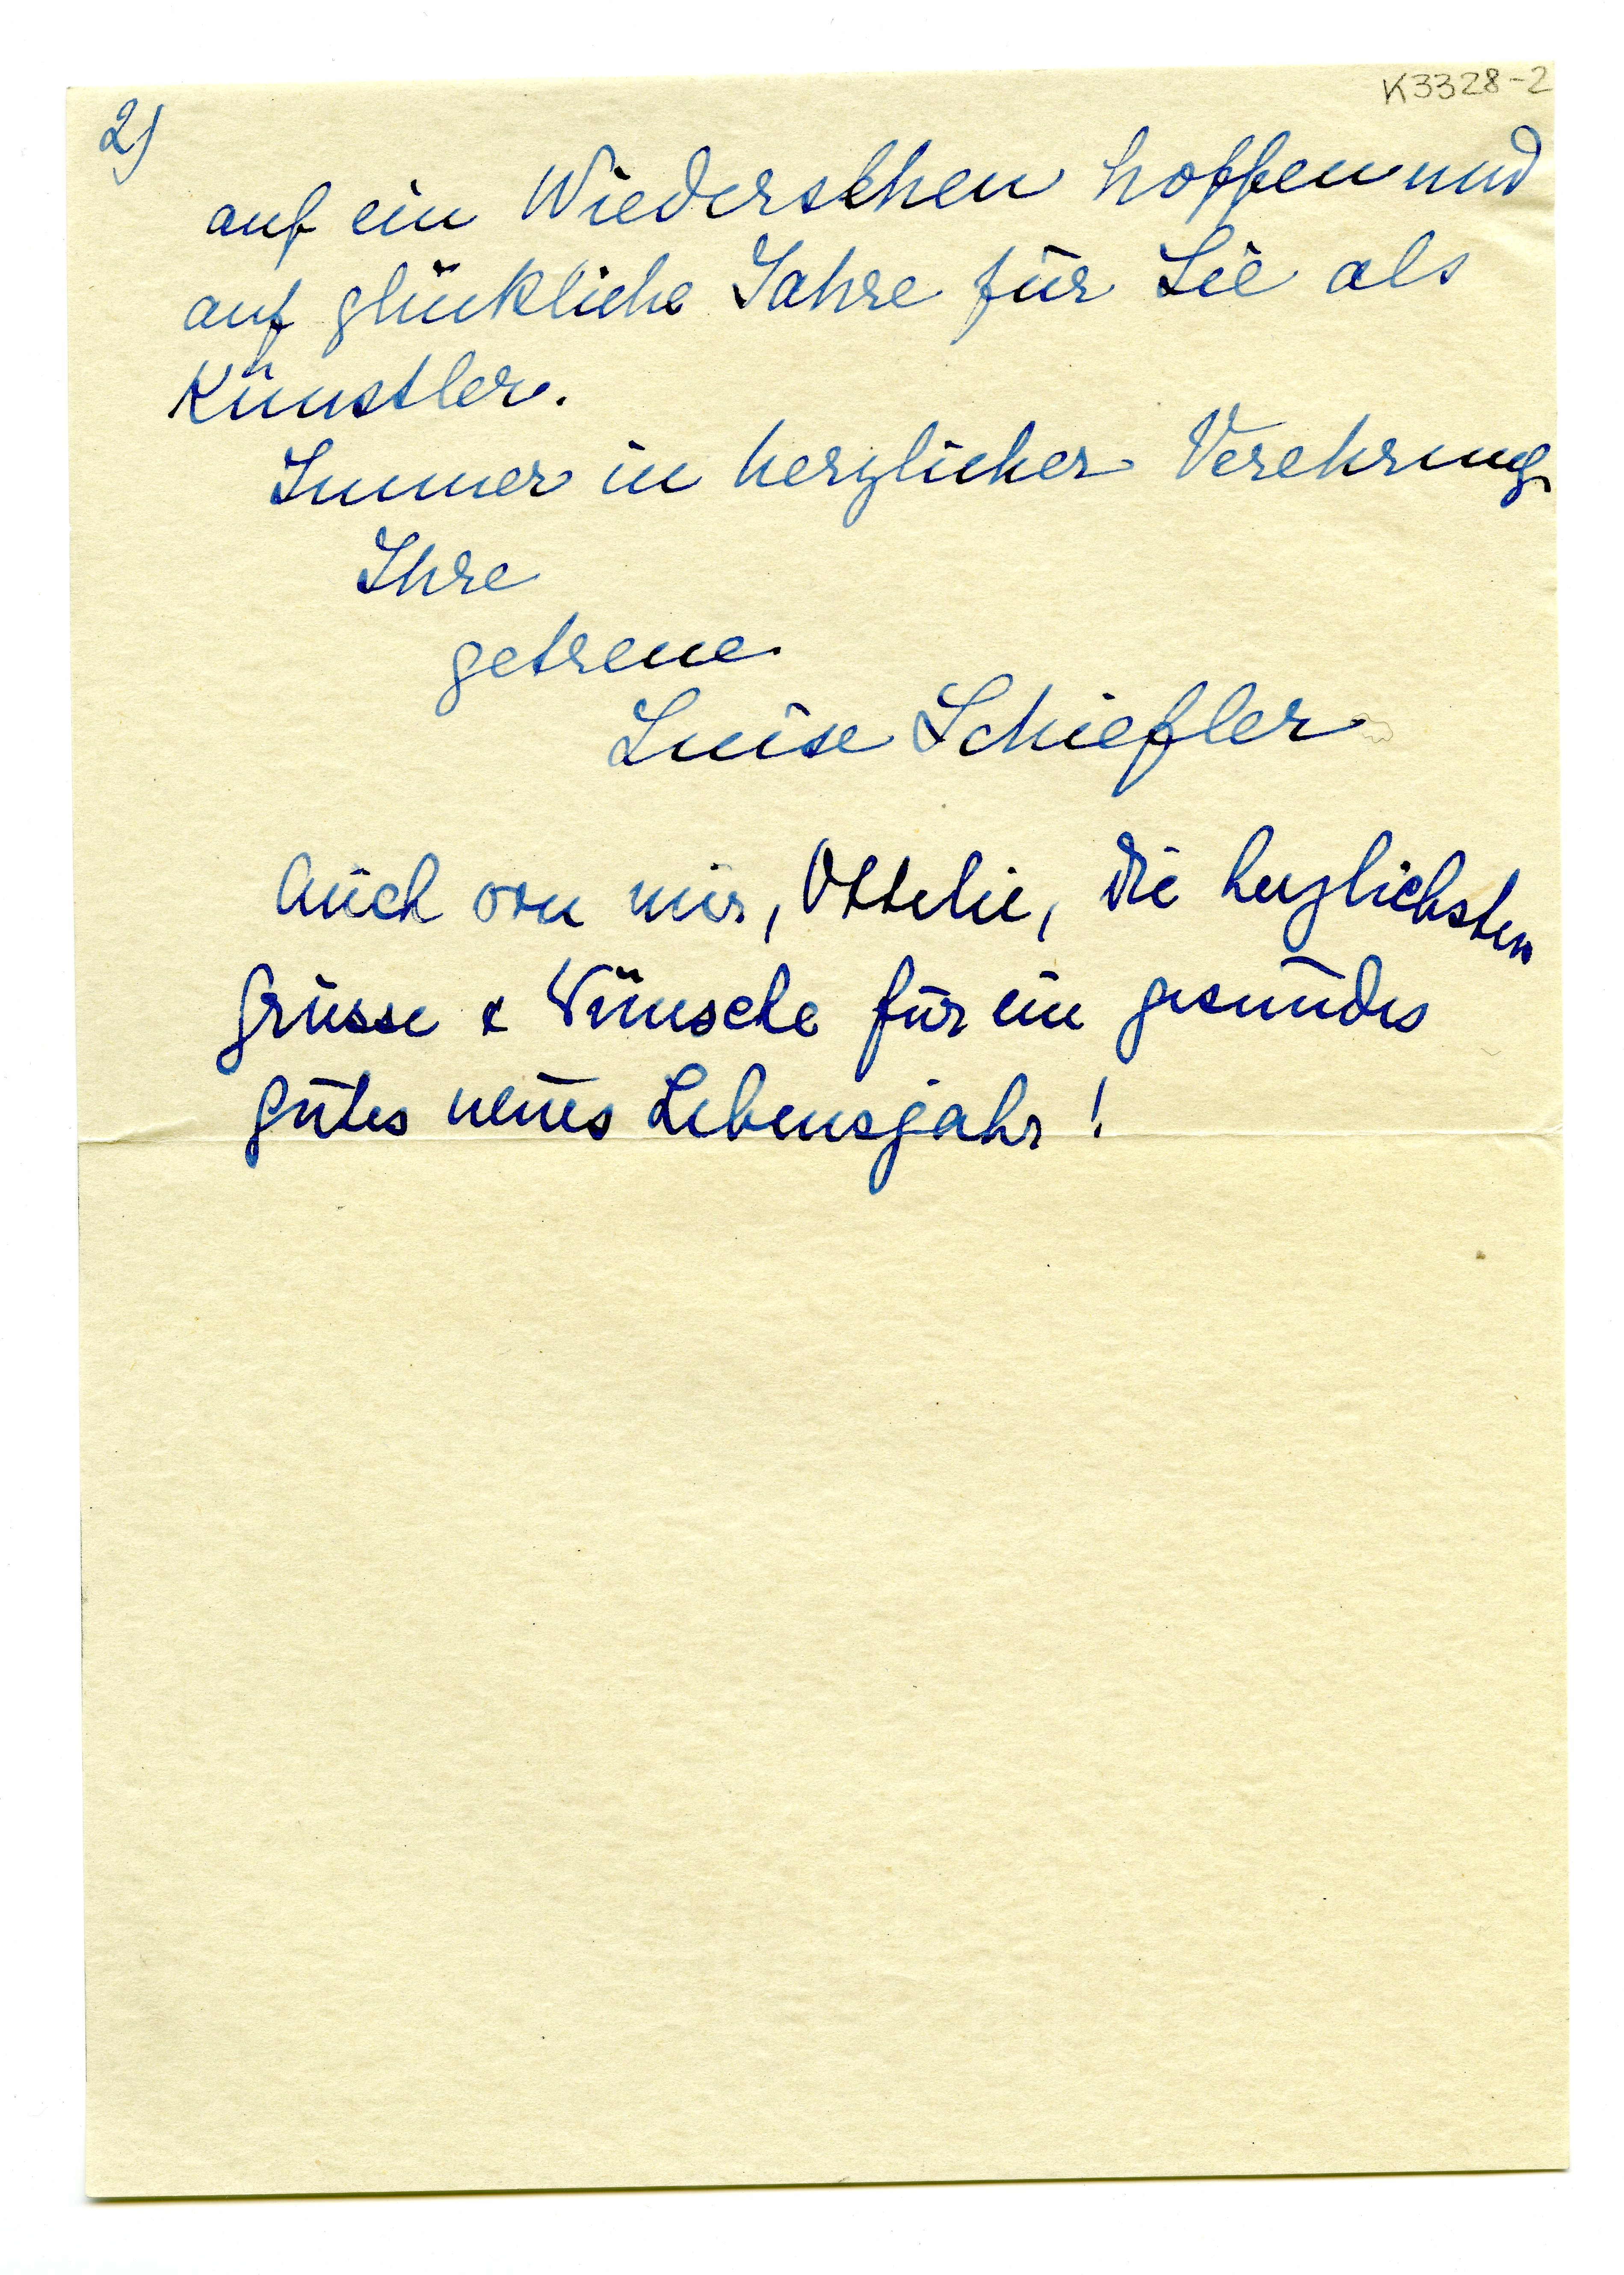 K3328-2
2)
auf ein Wiedersehen hoffen und
auf glückliche Jahre für Sie als
Künstler.
Immer in herzlicher Verehrung
Ihre
getreue
Luise Schiefler
Auch von mir, Ottilie, die herzlichsten
Grüsse & Wünsche für ein gesundes
gutes neues Lebensjahr!